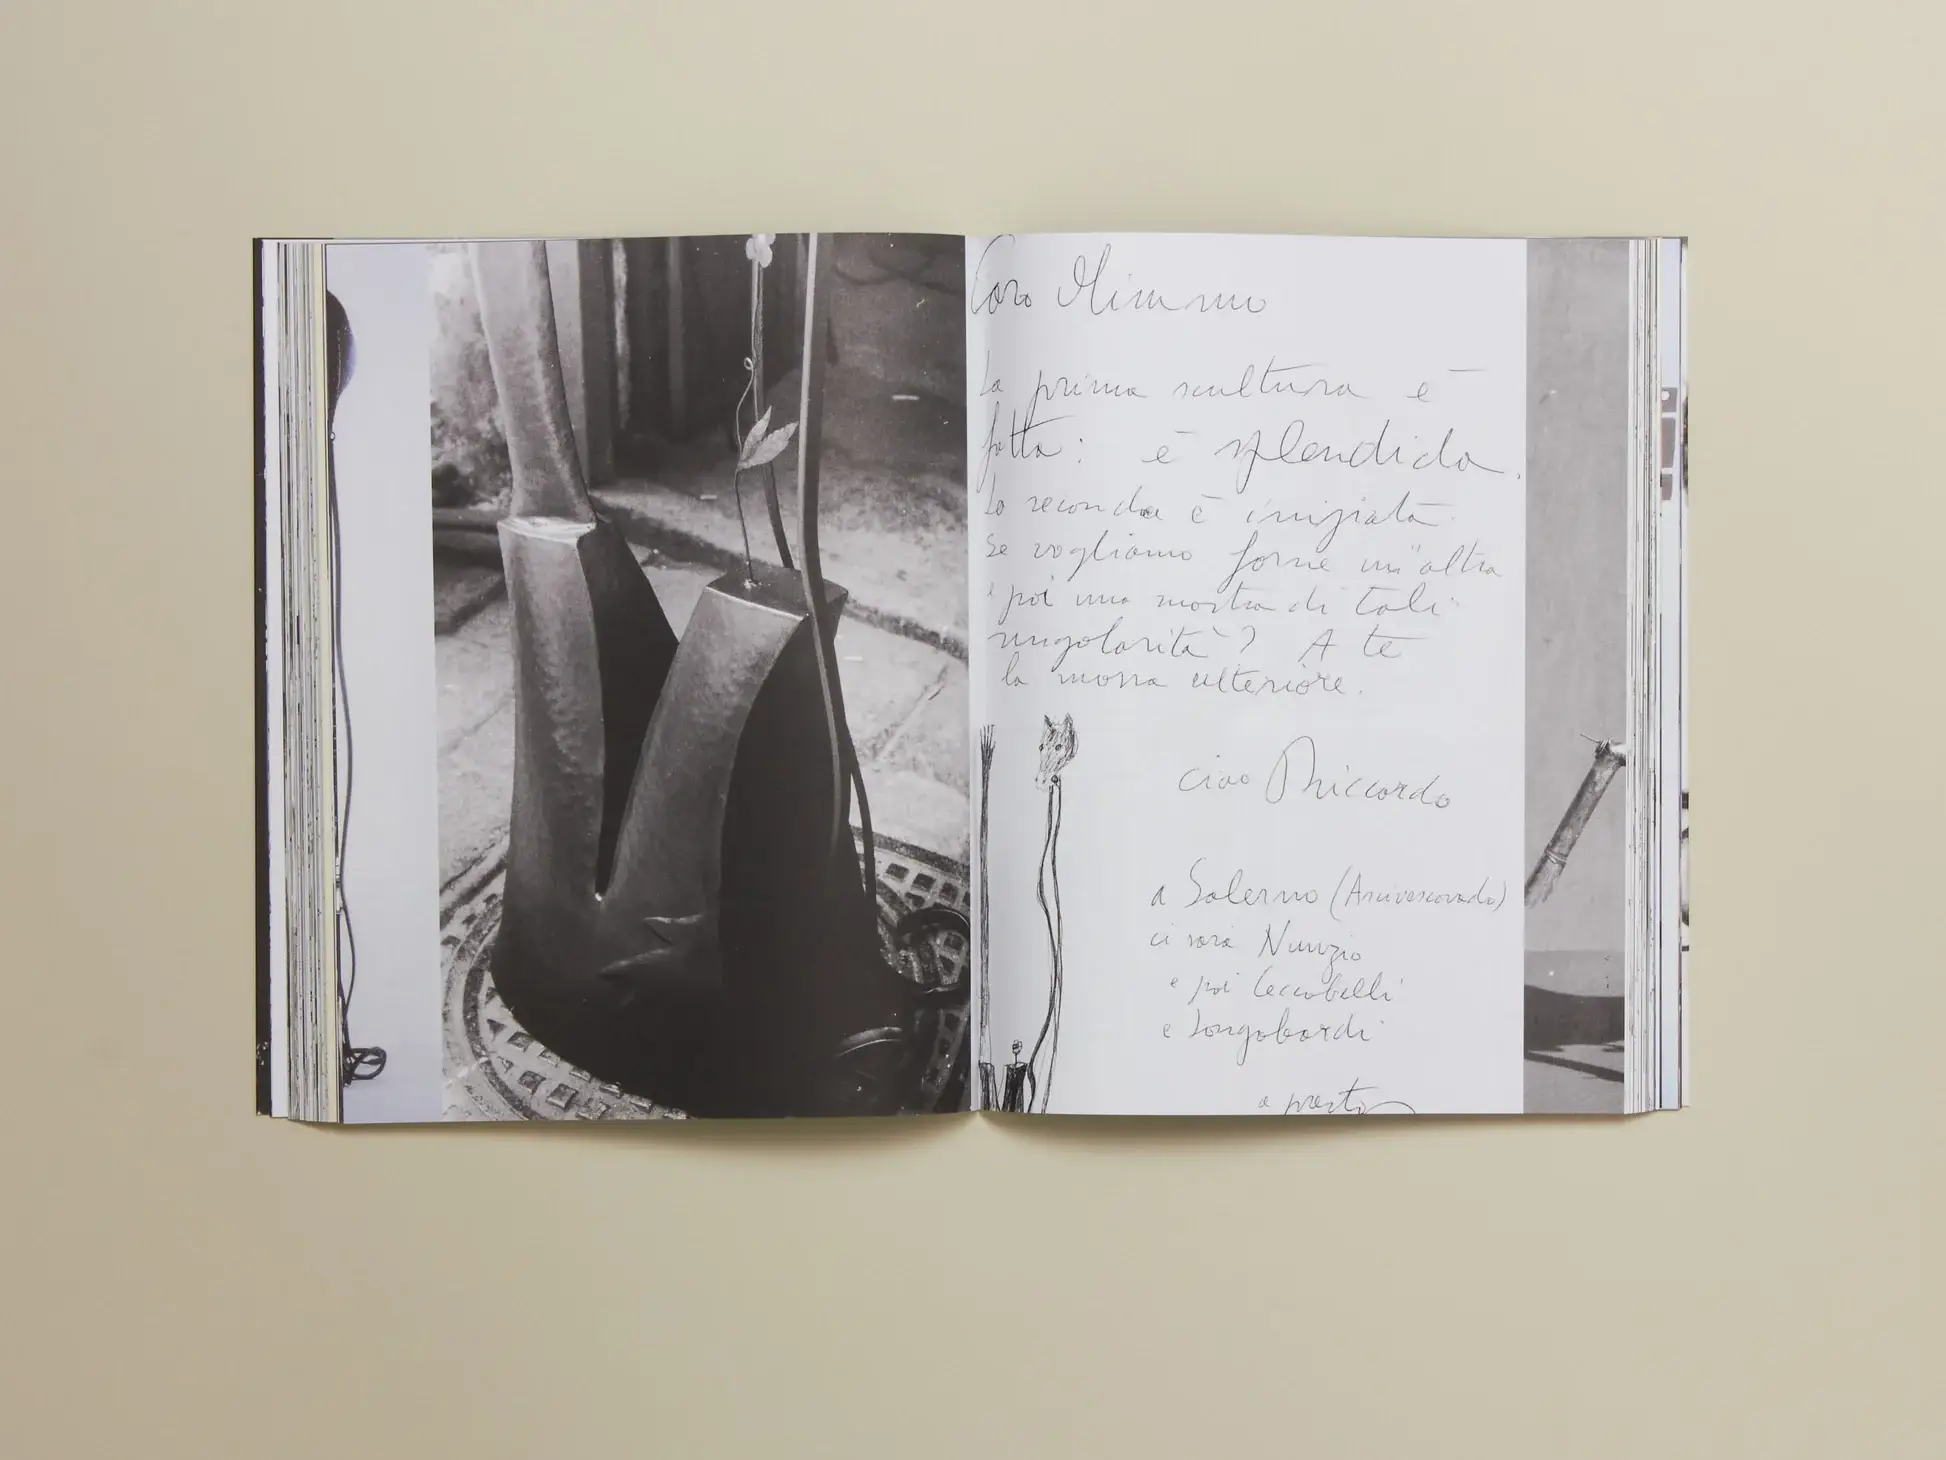 Caro Mimmo
la prima scultura è
fatta: è splendida.
la seconda è iniziata
se vogliamo farne un'altra
e poi una mostra di tali
singolarità? A te
la mossa ulteriore.
ciao Riccardo
a Salerno (Arcivescovado)
ci sarà Nunzio
e poi Ceccobelli
e Longobardi
a presto